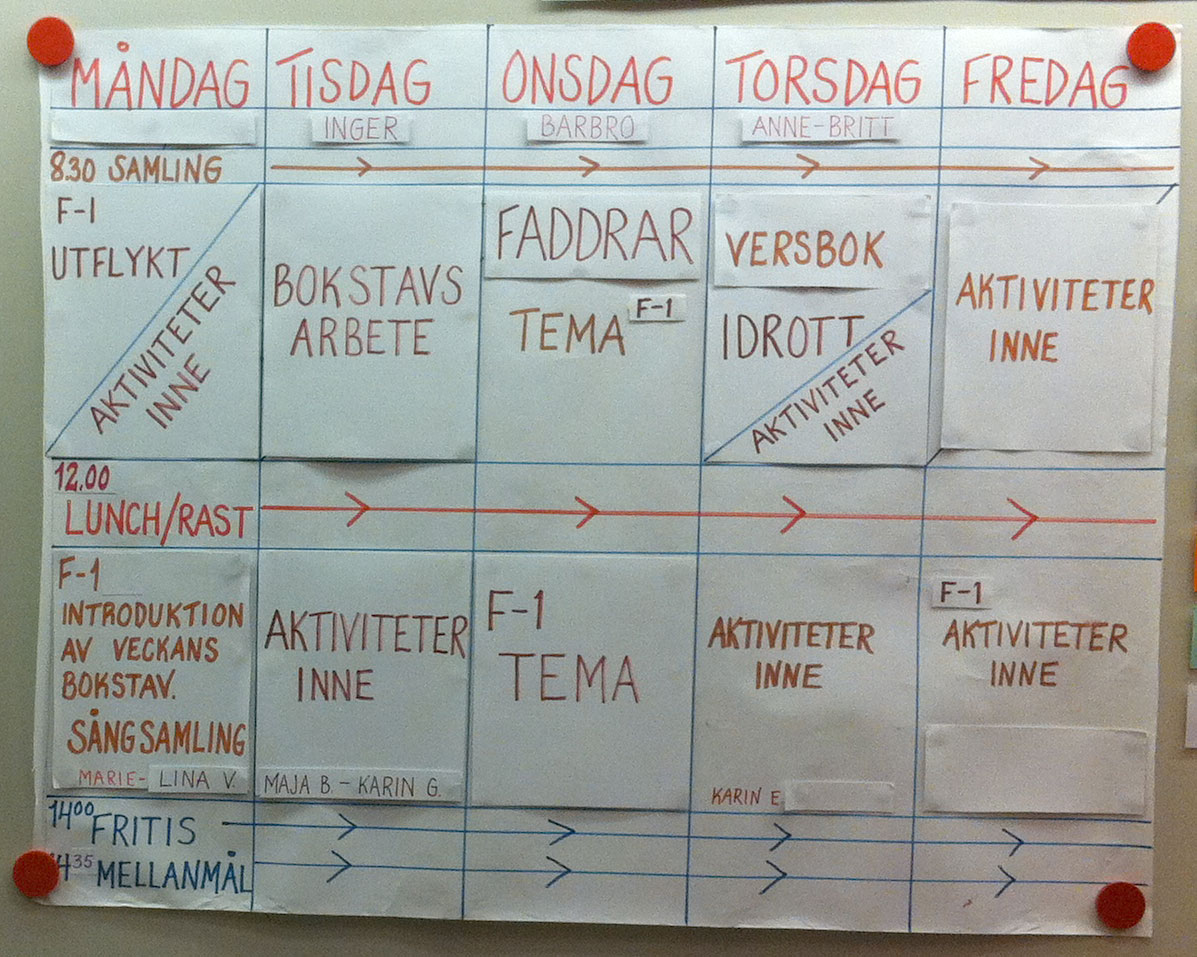 MÅNDAG TISDAG ONSDAG TORSDAG FREDAG
INGER BARBRO ANNE-BRITT
8.30 SAMLING
F-1
UTFLYKT
AKTIVITETER
INNE
BOKSTAVS
ARBETE
FADDRAR
TEMA F-1
VERSBOK
IDROTT
AKTIVITETER
INNE
AKTIVITETER
INNE
12.00
LUNCH/RAST
F-1
INTRODUKTION
AV VECKANS
BOKSTAV.
SÅNGSAMLING
MARIE- LINA V.
AKTIVITETER
INNE
MAJA B. - KARIN G.
F-1
TEMA
AKTIVITETER
INNE
KARIN E.
F-1
AKTIVITETER
INNE
1400 FRITIS
35 MELLANMÅL